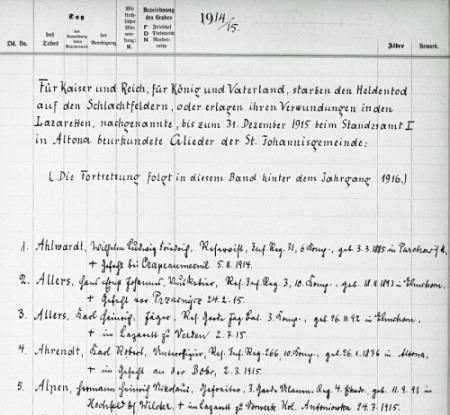 Tag
des Todes
der Beerdigung
Bezeichnung des Grabes
F Friedhof
D Diebsteich
N Norder-
reihe
Lfd. No.
1914/15.
Alter
Bemerk.
Für Kaiser und Reich, für König und Vaterland, starben den Heldentod
auf den Schlachtfeldern, oder erlagen ihren Verwundungen in den
Lazaretten, nachgenannte, bis zum 31. Dezember 1915 beim Standesamt I
in Altona beurkundete Glieder der St. Johannisgemeinde:
(Die Fortsetzung folgt in diesem Band hinter dem Jahrgang 1916.)
1. Ahlwardt, Wilhelm Ludwig Friedrich, Reservist, Inf. Reg. 31, 6 Komp., geb. 3.3.1885 in Parchow
+ Gefecht bei 5.11.1914.
2. Allers, Hans Johannes, Musketier, Ref. Inf. Reg. 3, 10. Komp., geb. 18.11 1893 in Elmshorn,
+ Gefecht vor 24.2.15.
3. Allers, Karl Heinrich, Jäger, Res. Garde Jäg. Bat. 3. Komp., geb. 26.11.92 in Elmshorn,
+ im Lazarett zu Verden 2.7.15.
4. Ahrendt, Karl Robert, Unteroffizier, Ref. Inf. Reg. 266, 10. Komp., geb. 26.1.1876 in Altona,
+ im Gefecht an der Bobr, 2.3.1915.
5. Alpen, Hermann Heinrich Nikolaus, Gefreiter, 3. Garde Ulanen Reg. 4. Eskadr. geb. 11.9.91 in
Hochfeld bei Wilster, + im Lazarett zu Vorwerk Kol. 24.7.1915.